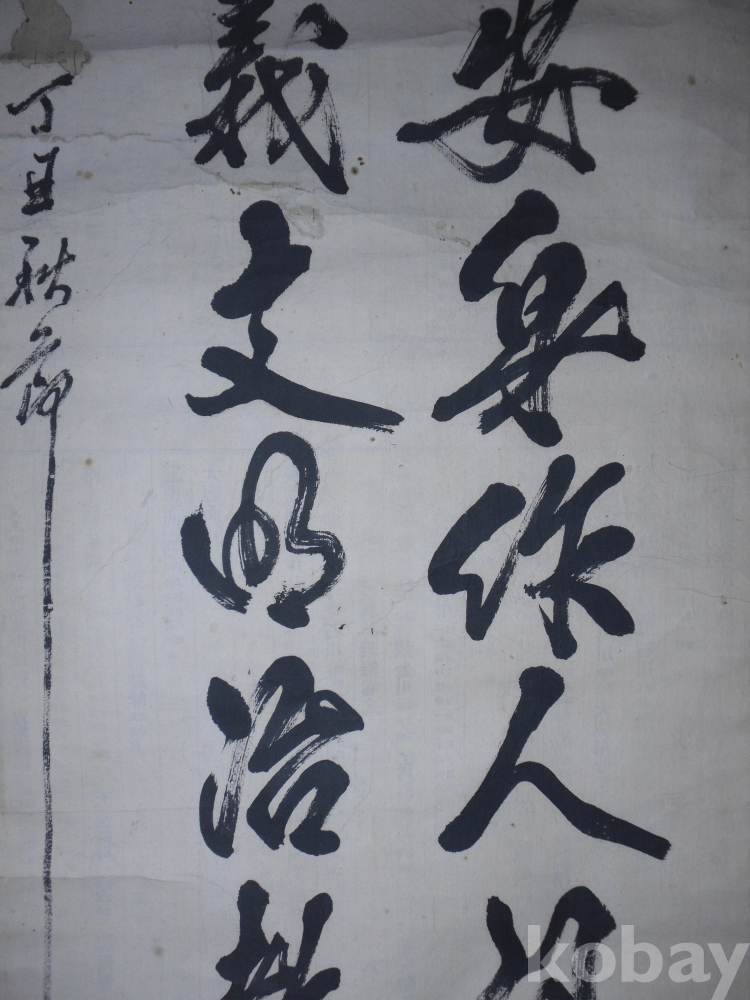 安身作人
義文明治
丁丑秋節
kobay